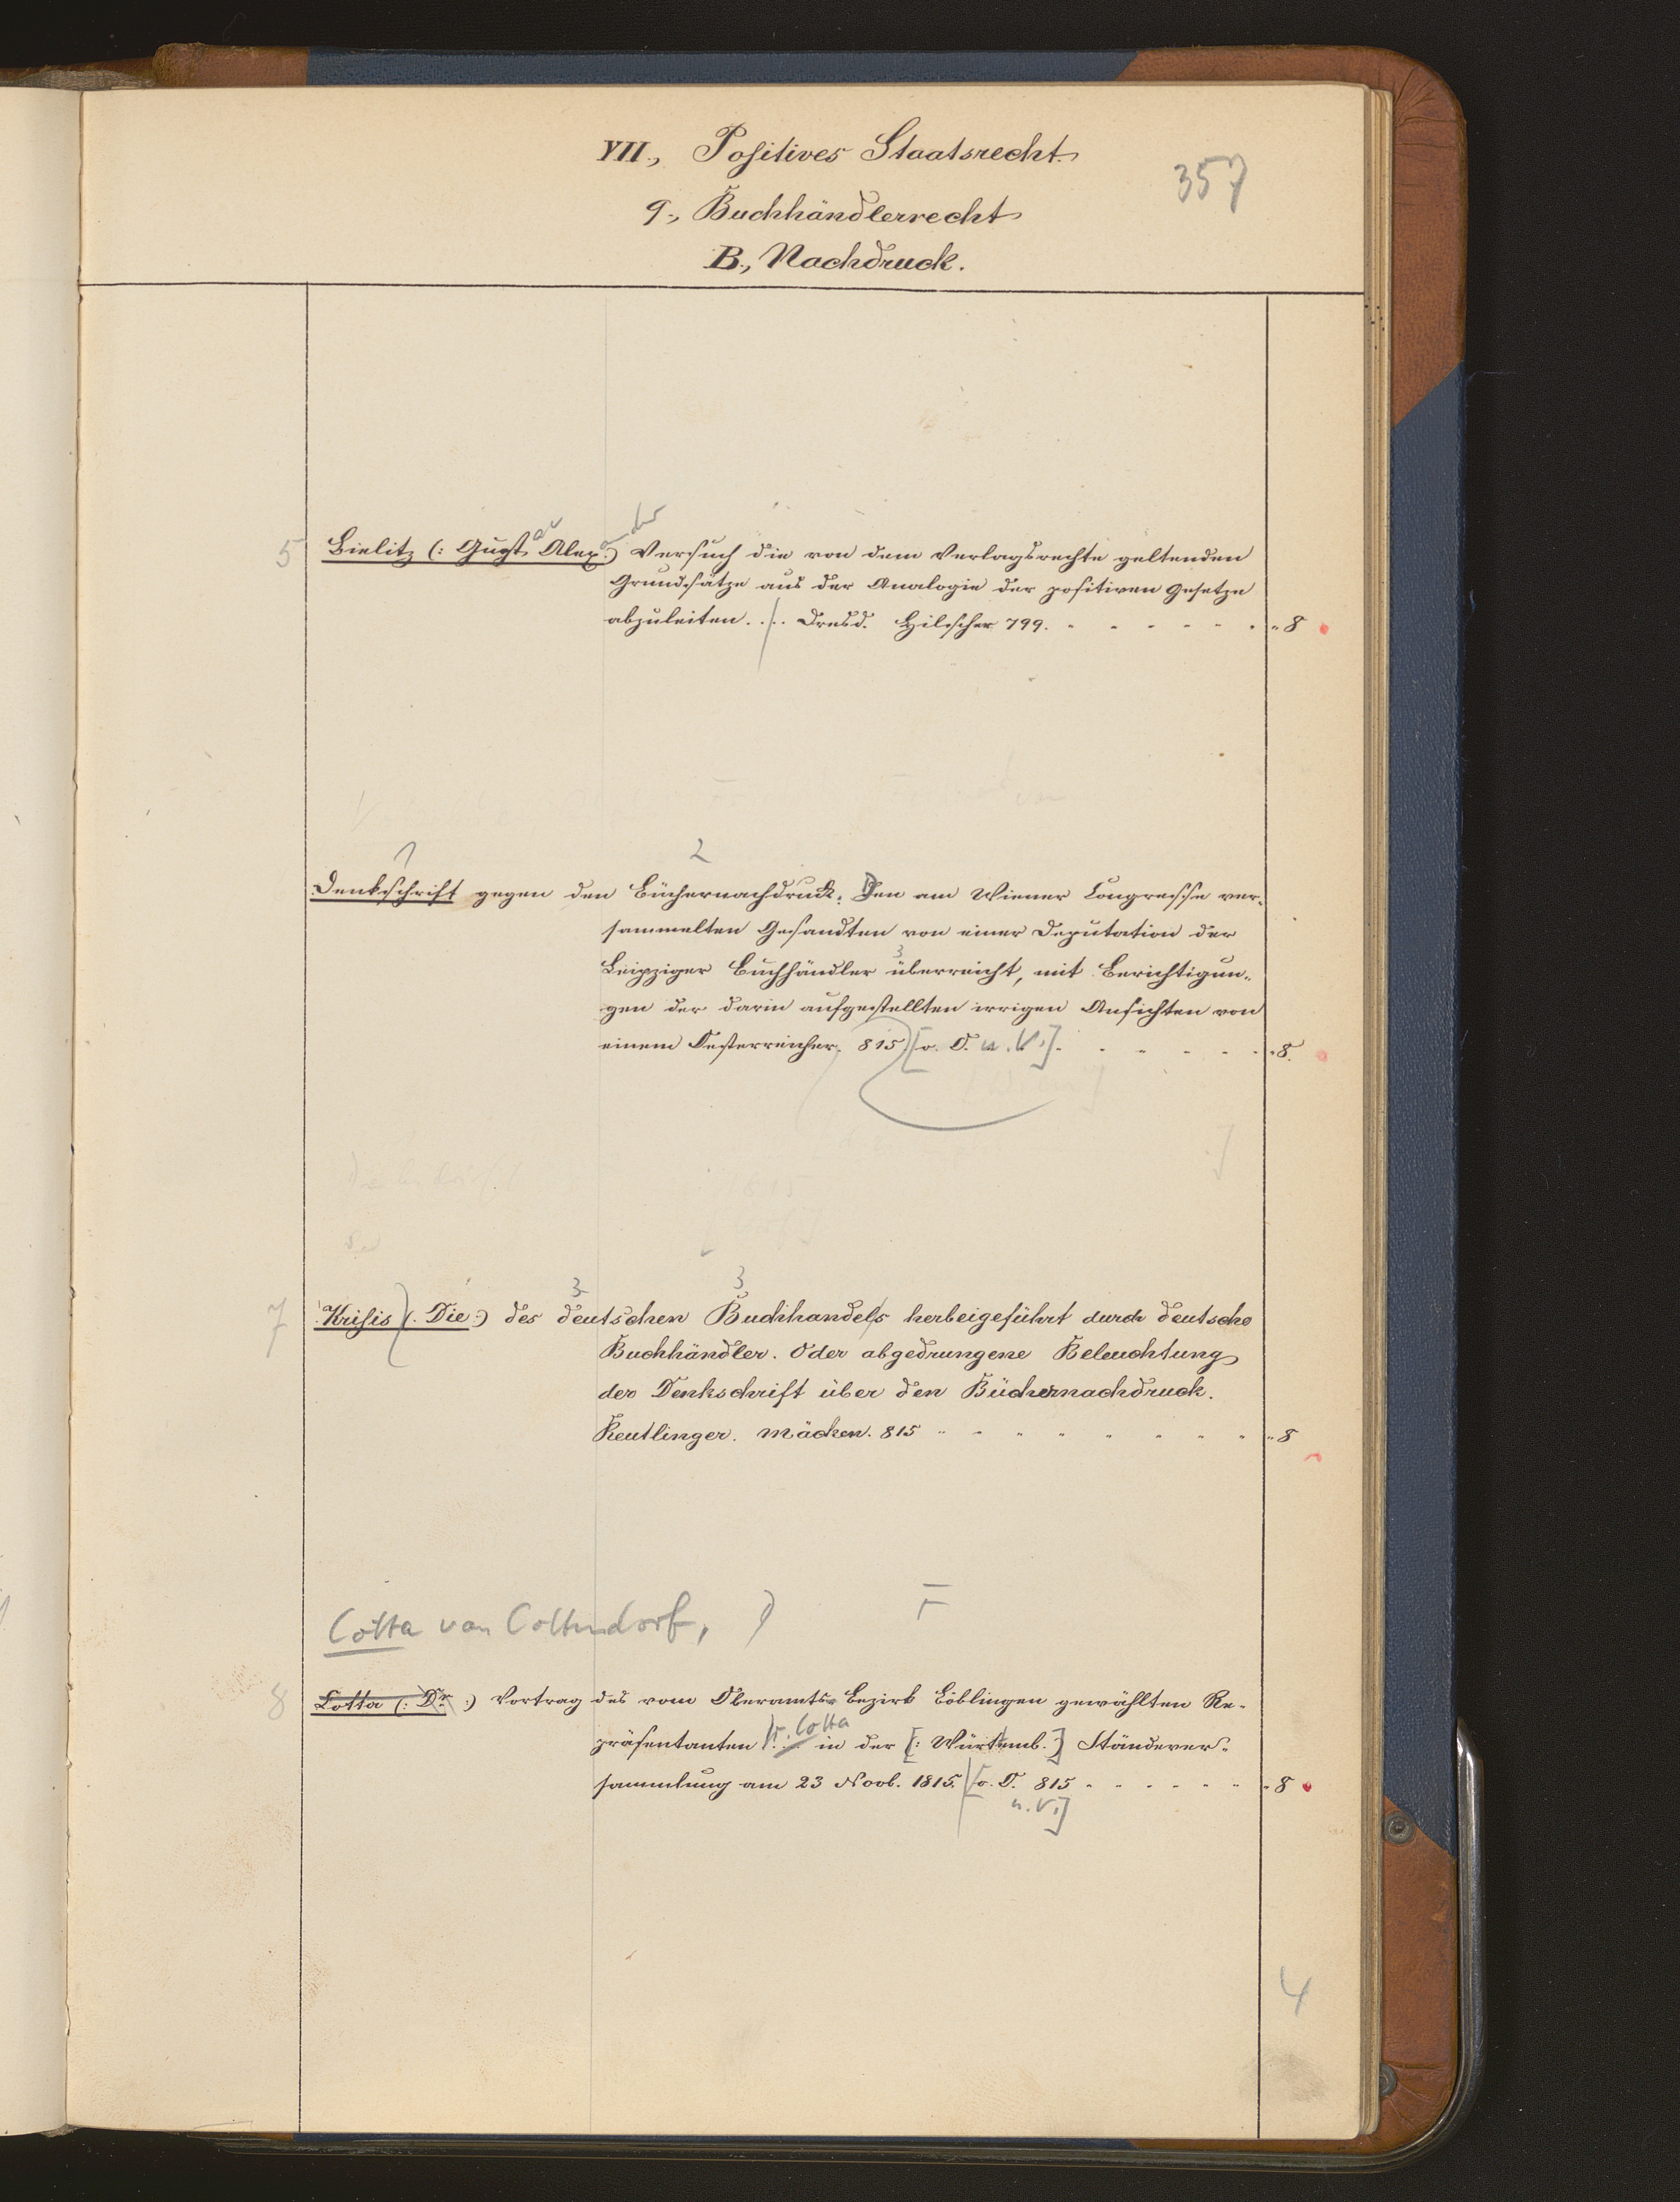 VII., Positives Staatsrecht
357
9., Buchhändlerrecht
B., Nachdruck.
5 Bielitz (: Gustav Alexander :) Versuch die von dem Verlagsrechte geltenden
Grundsätze aus der Analogie der positiven Gesetze
abzuleiten. . . . Dresd. Hilscher 799. " 8
1 2
Denkschrift gegen den Büchernachdruck. Den am Wiener Congresse ver-
sammelten Gesandten von einer Deputation der
3
Leipziger Buchhändler überreicht, mit Berichtigun-
gen der darin aufgestellten irrigen Ansichten von
einem Oesterreicher. 815 [o. O. u. V.] " 8.
3 3
7 Krisis (: Die :) des deutschen Buchhandels herbeigeführt durch deutsche
Buchhändler. Oder abgedrungene Beleuchtung
der Denkschrift über den Büchernachdruck.
Reutlinger. Mäcken. 815 " 8
Cotta von Cottendorf,
8 Cotta (: Dr :) Vortrag des vom Oberamts-Bezirk Böblingen gewählten Re-
präsentanten . . . Cotta in der [: Württemb.] Ständever-
sammlung am 23 Novb. 1815. [o. O. 815 " 8
u. V.]
4